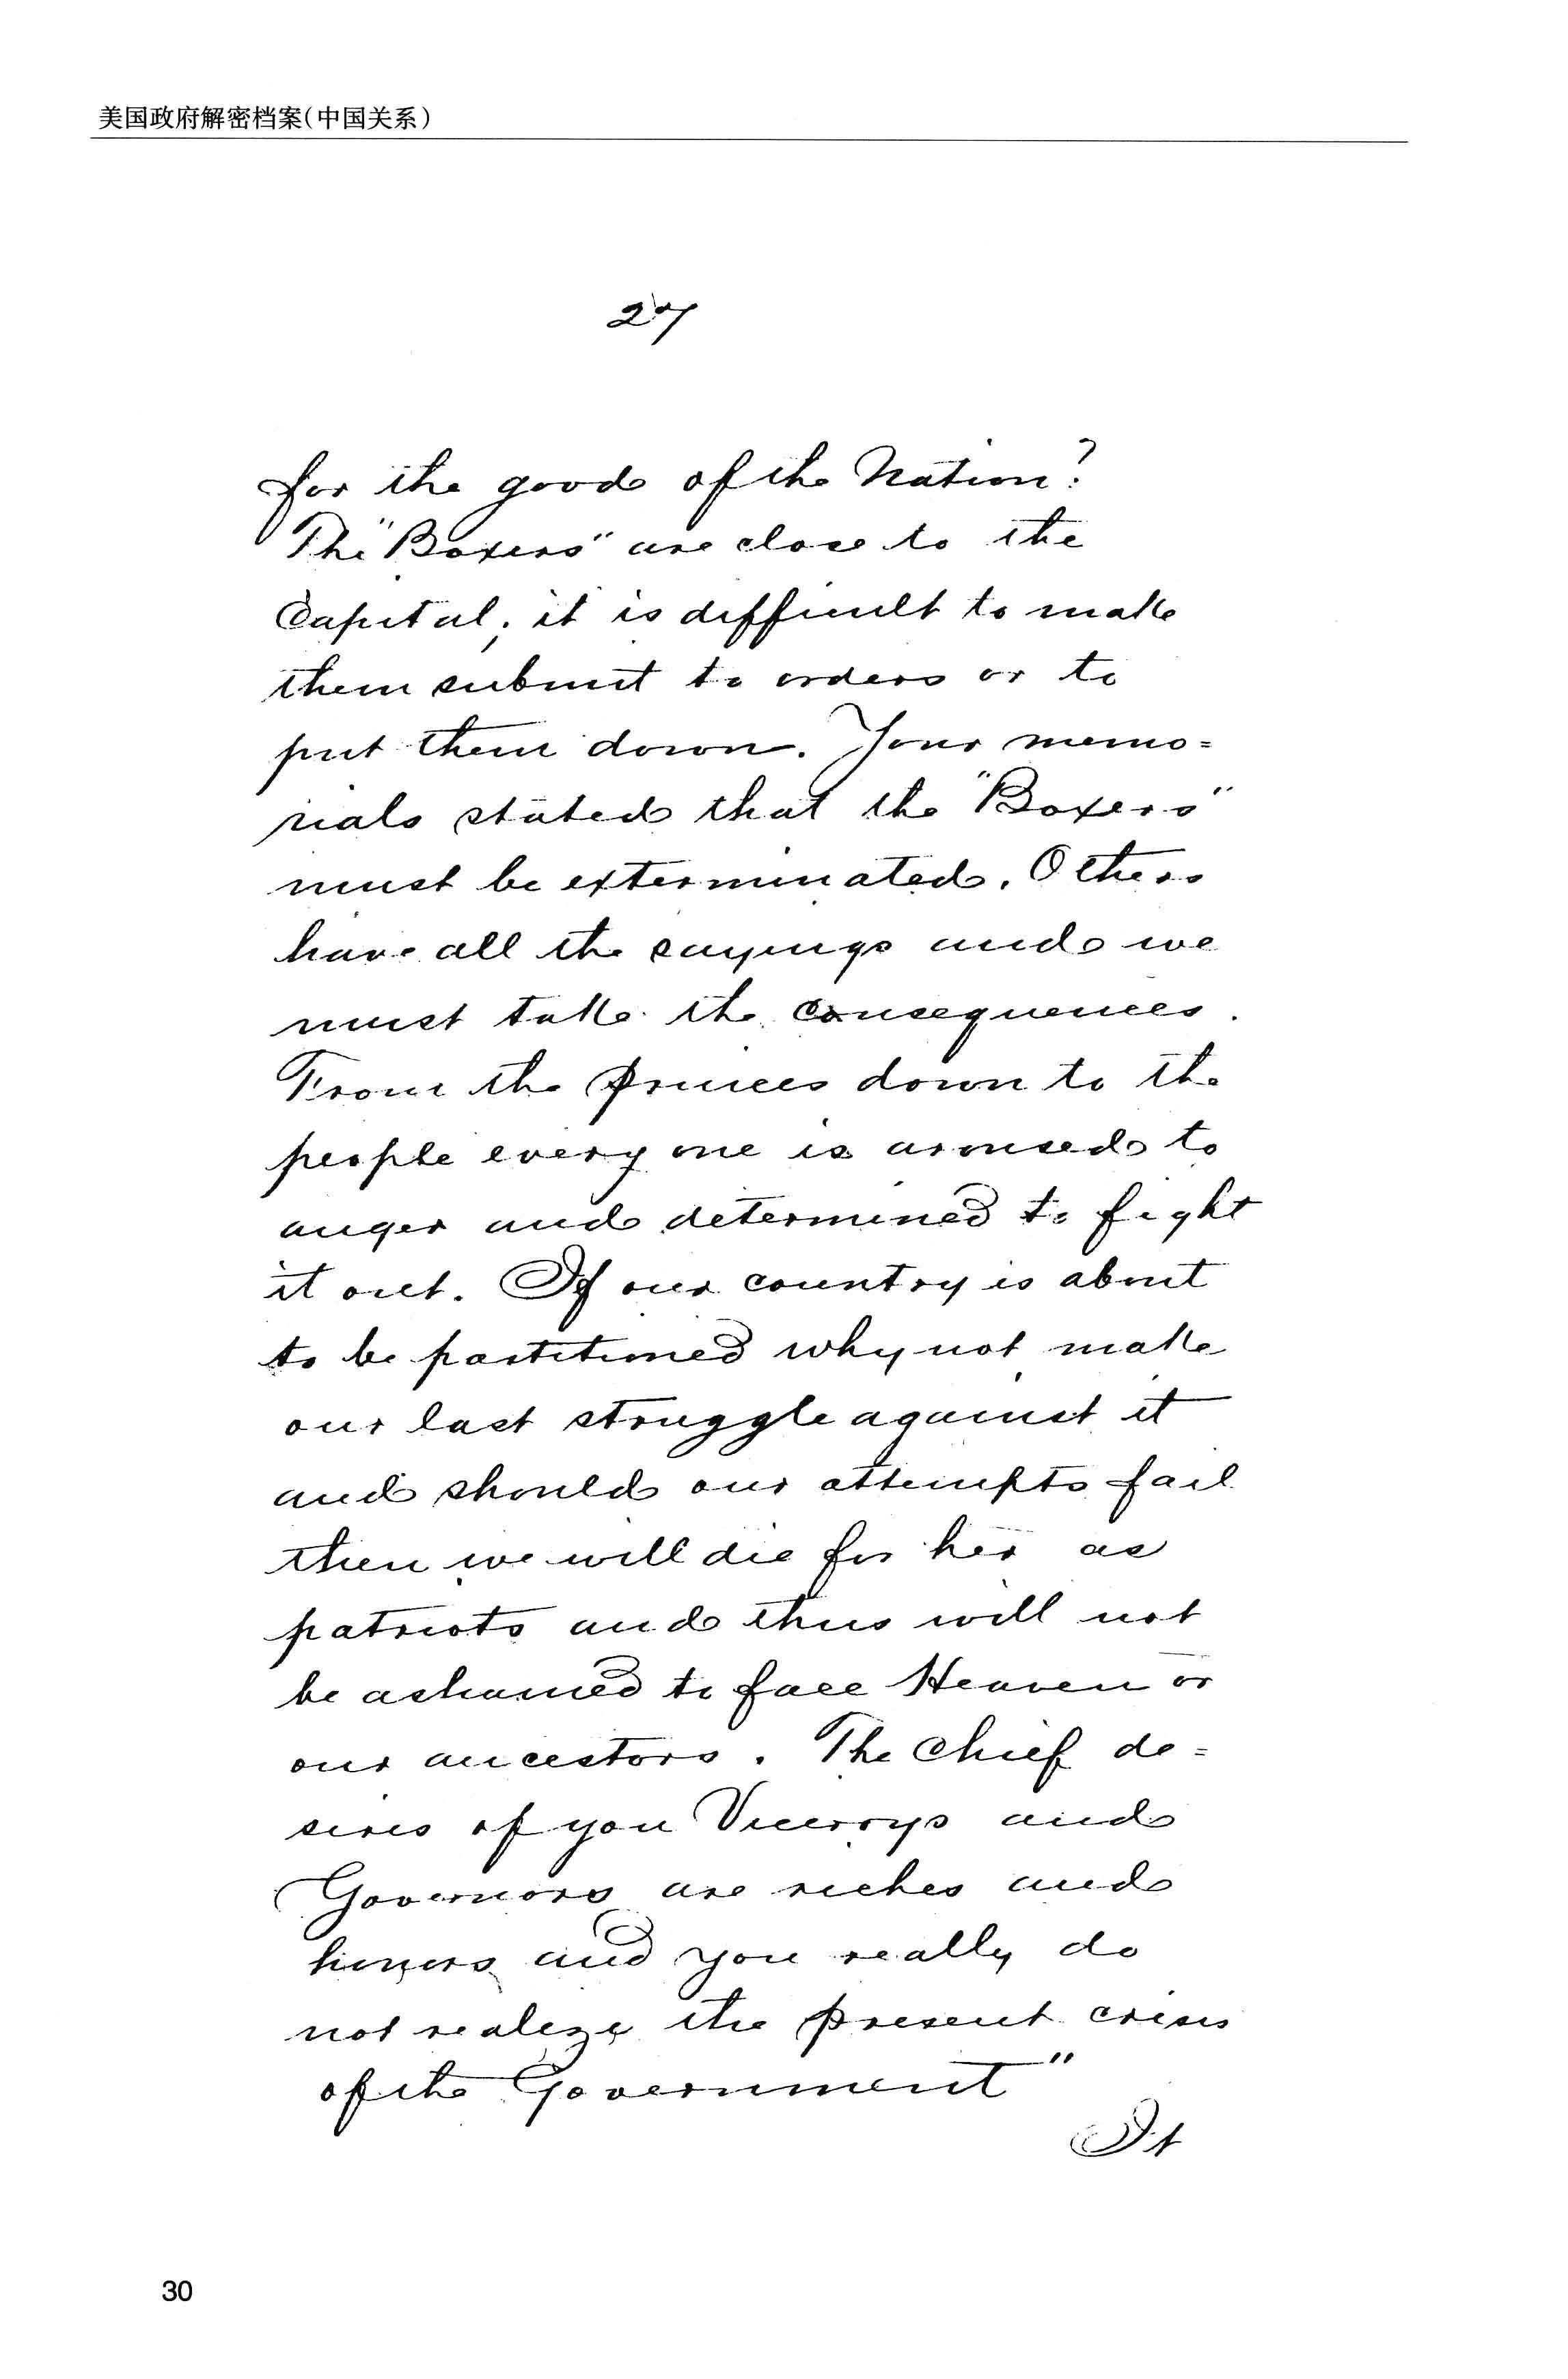 美国政府解密档案(中国关系)
27
for the good of the Nation?
The "Boxers" are close to the
Capital; it is difficult to make
them submit to orders or to
put them down. Your memo=
rials stated that the "Boxers"
must be exterminated. Others
have all the sayings and we
must take the consequences.
From the Princes down to the
people every one is aroused to
anger and determined to fight
it out. If our country is about
to be partitioned why not make
our last struggle against it
and should our attempts fail
then we will die for her as
patriots and thus will not
be ashamed to face Heaven or
our ancestors. The chief de=
sires of you Viceroys and
Governors are riches and
honors and you really do
not realize the present crisis
of the Government"
It
30